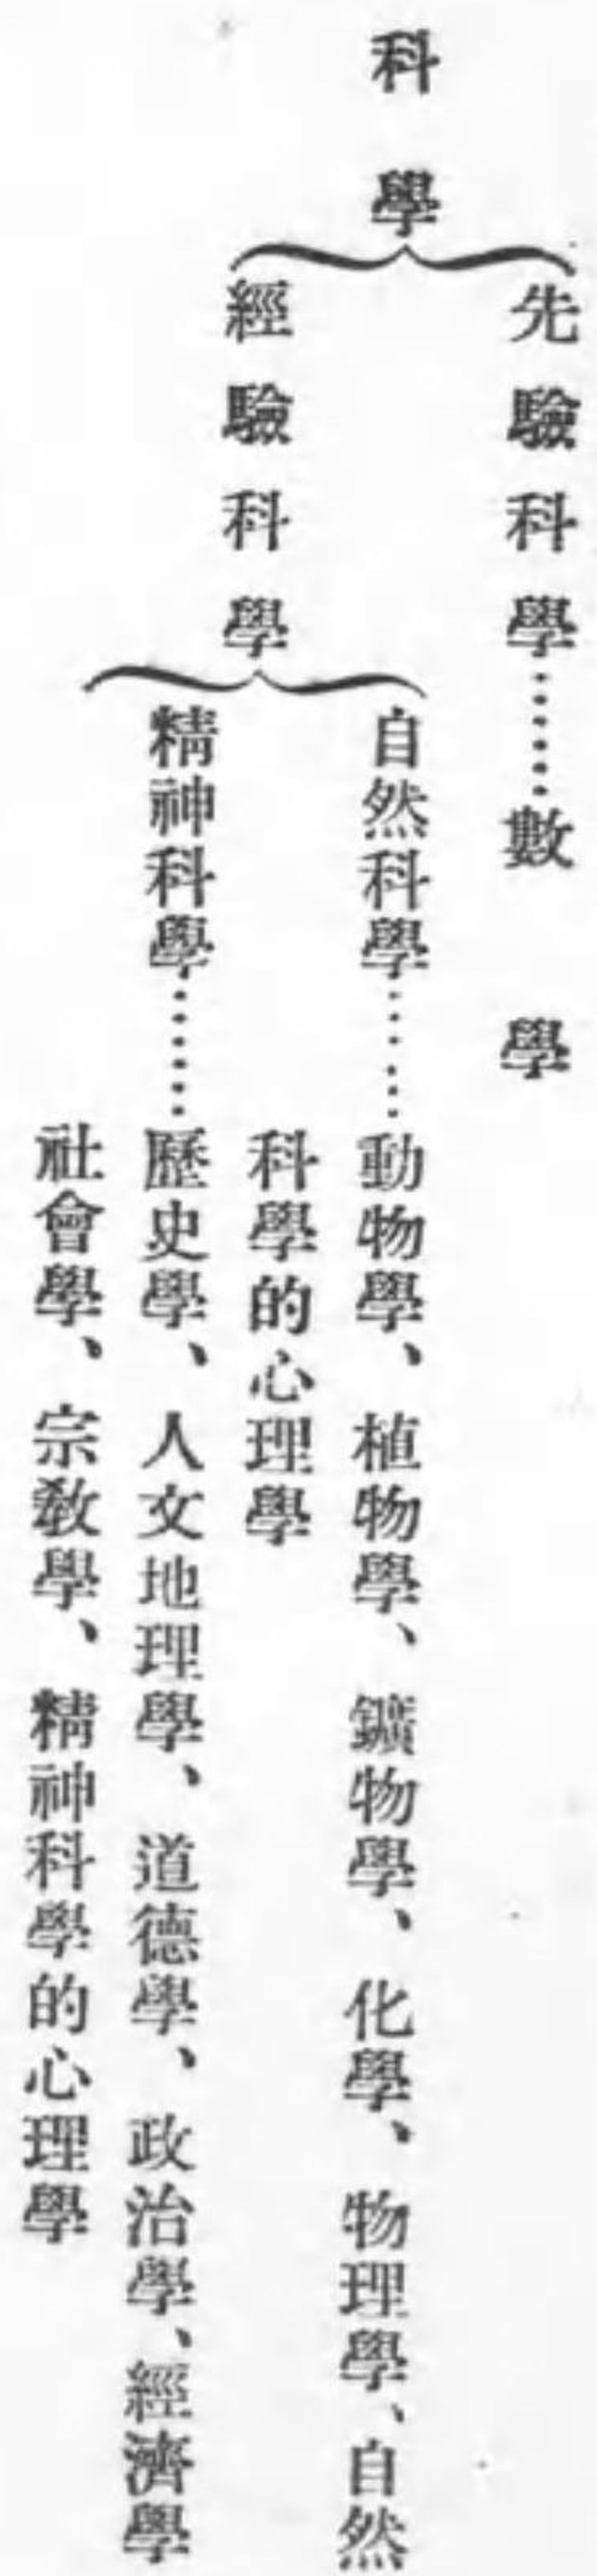 科學
先驗科學……數學
經驗科學
自然科學……動物學、植物學、鑛物學、化學、物理學、自然
科學的心理學
精神科學……歷史學、人文地理學、道德學、政治學、經濟學
社會學、宗敎學、精神科學的心理學